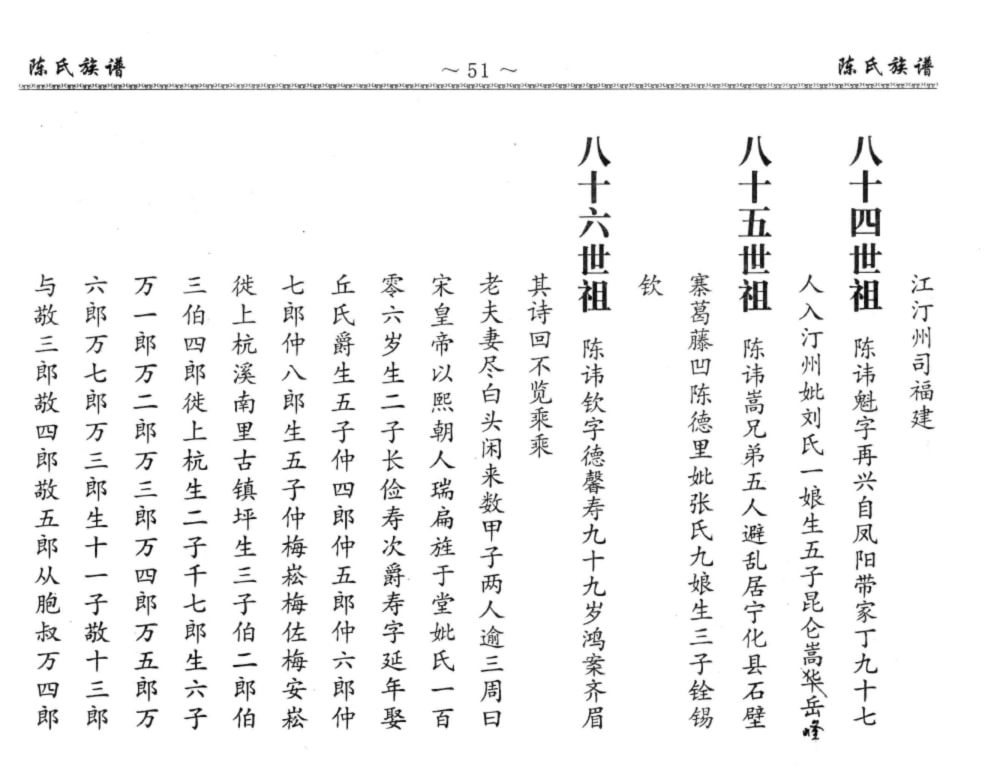 陈氏族谱
～51～
陈氏族谱
江汀州司福建
八十四世祖 陈讳魁字再兴自凤阳带家丁九十七
人入汀州妣刘氏一娘生五子昆仑嵩华岳峰
八十五世祖 陈讳嵩兄弟五人避乱居宁化县石壁
寨葛藤凹陈德里妣张氏九娘生三子铨锡
钦
八十六世祖 陈讳钦字德馨寿九十九岁鸿案齐眉
其诗回不览乘乘
老夫妻尽白头闲来数甲子两人逾三周曰
宋皇帝以熙朝人瑞扁旌于堂妣氏一百
零六岁生二子长俭寿次爵寿字延年娶
丘氏爵生五子仲四郎仲五郎仲六郎仲
七郎仲八郎生五子仲梅崧梅佐梅安崧
徙上杭溪南里古镇坪生三子伯二郎伯
三伯四郎徙上杭生二子千七郎生六子
万一郎万二郎万三郎万四郎万五郎万
六郎万七郎万三郎生十一子敬十三郎
与敬三郎敬四郎敬五郎从胞叔万四郎